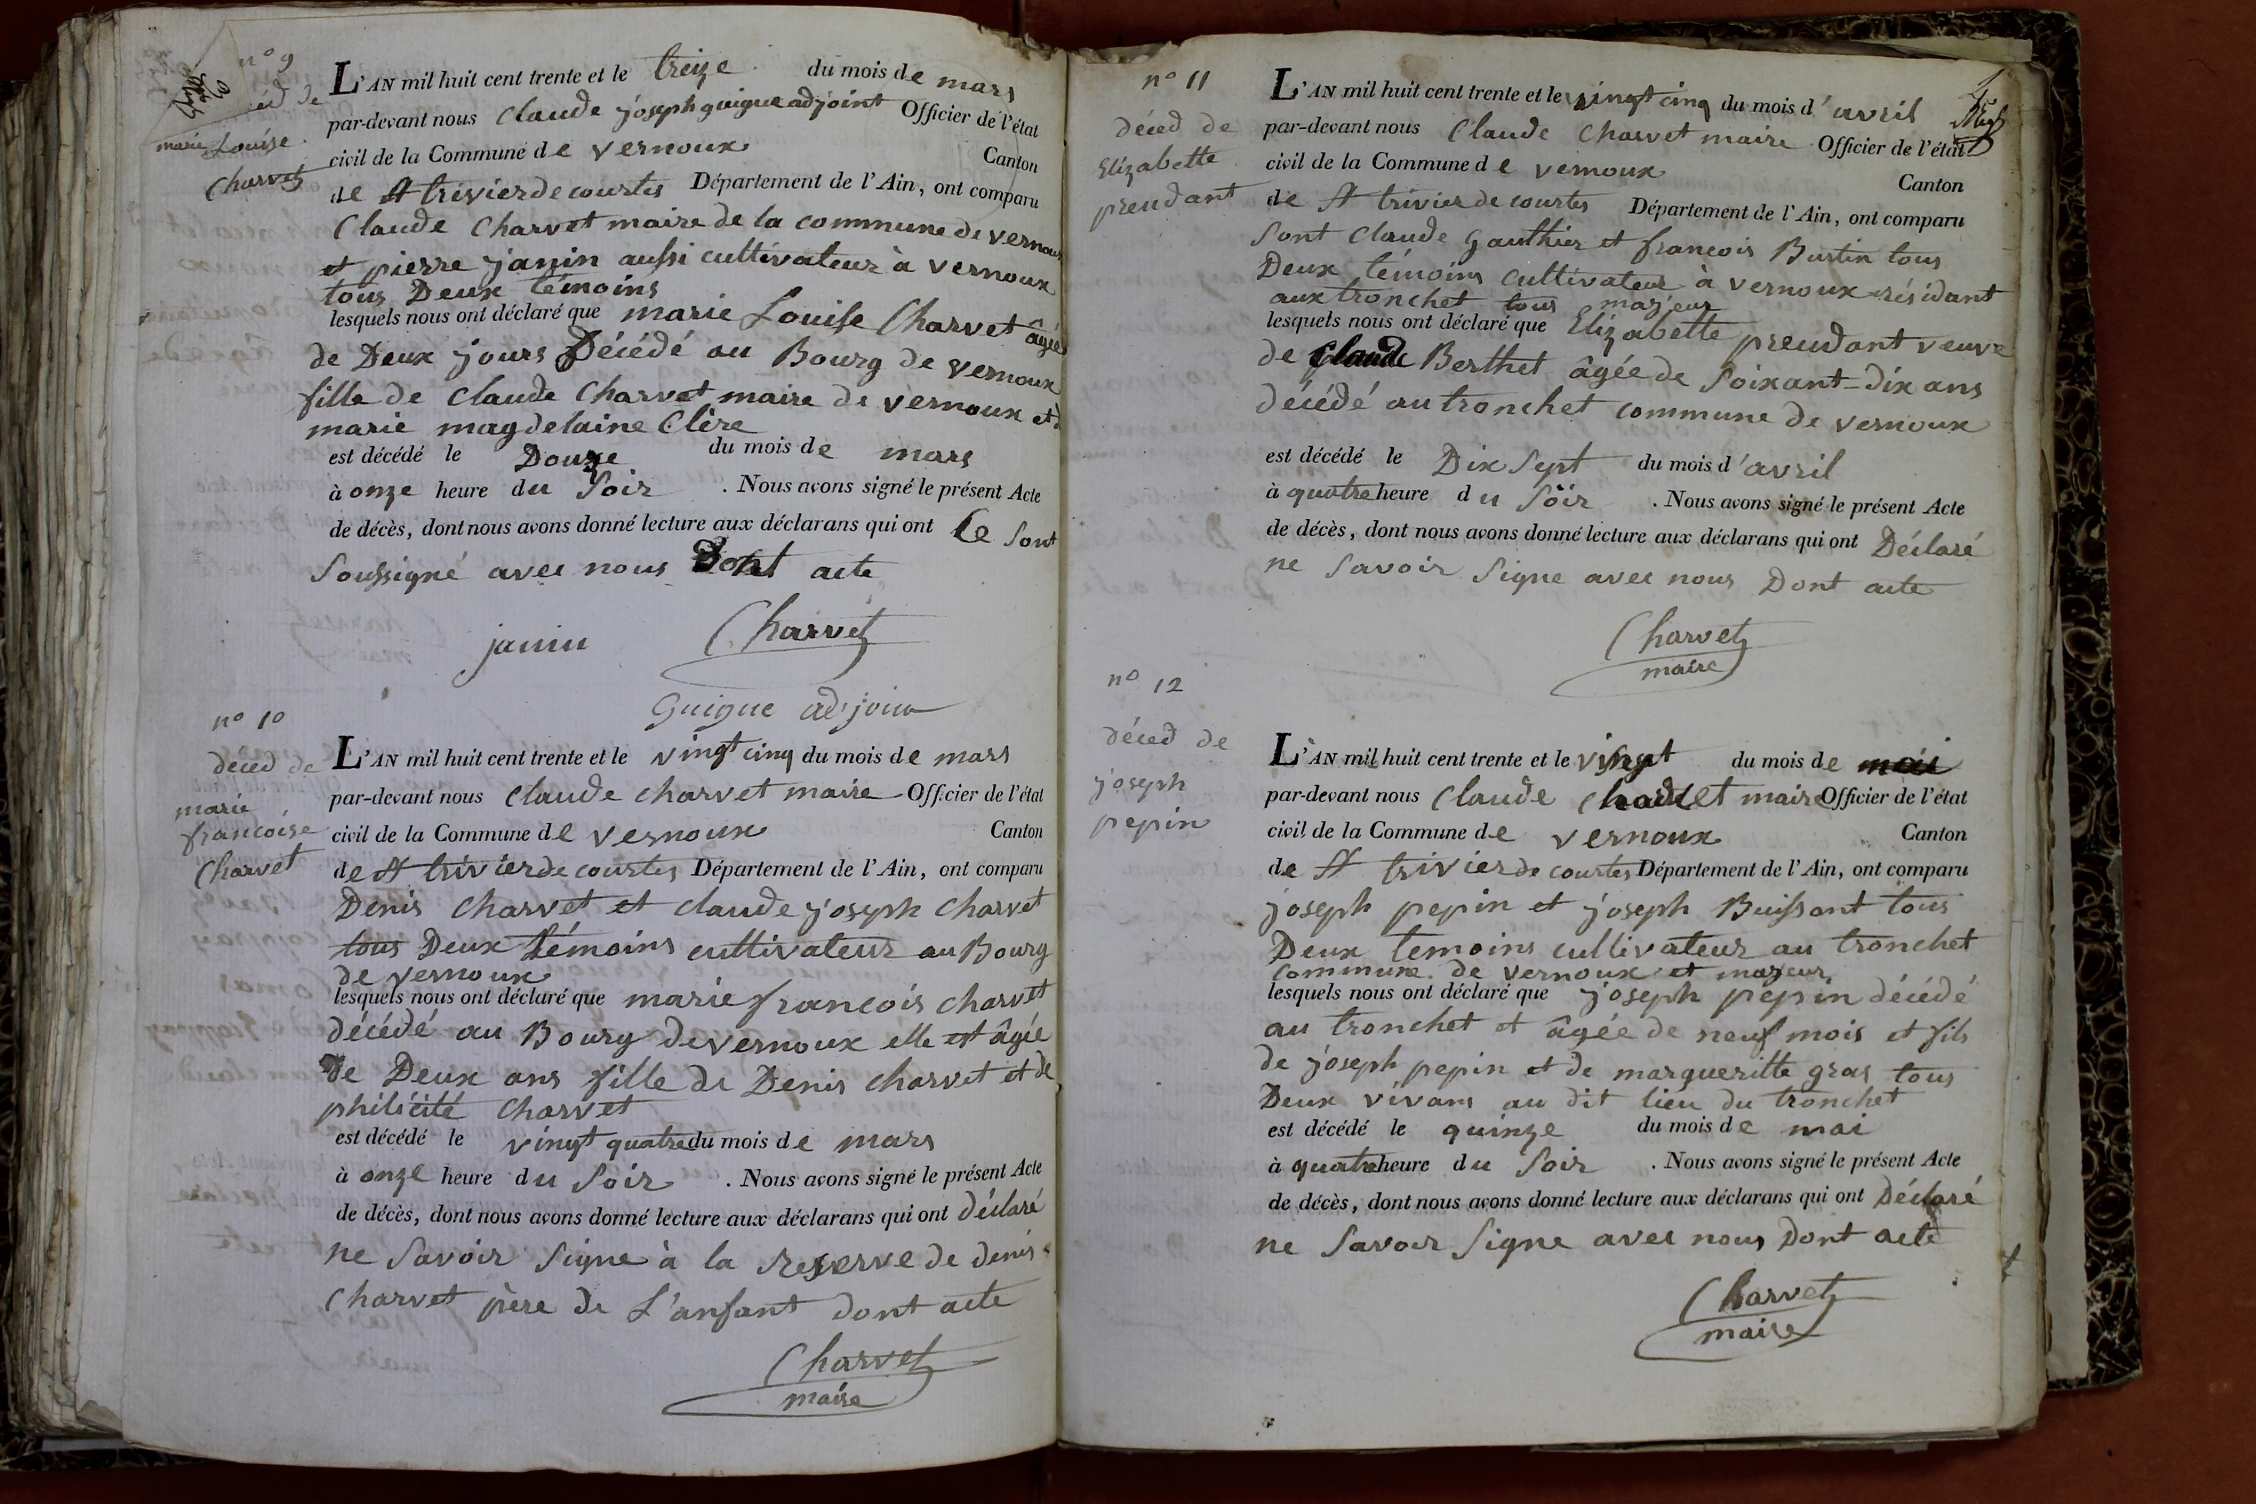 n° 9
décéd de
marie Louise
Charvet
L'AN mil huit cent trente et le treize du mois de mars
par-devant nous Claude joseph guigue adjoint Officier de l'état
civil de la Commune de vernoux Canton
de St trivier de courtes Département de l'Ain, ont comparu
Claude Charvet maire de la commune de vernoux
et pierre janin aussi cultivateur à vernoux
tous Deux témoins
lesquels nous ont déclaré que marie Louise Charvet âgée
de Deux jours Décédé au Bourg de vernoux
fille de Claude Charvet maire de vernoux et de
marie magdelaine Clère
est décédé le Douze du mois de mars
à onze heure du Soir . Nous avons signé le présent Acte
de décès, dont nous avons donné lecture aux déclarans qui ont Ce sont
Soussigné avec nous Dont acte
janin Charvet
Guigue adjoin
n° 10
décéd de
marie
francoise
Charvet
L'AN mil huit cent trente et le vingt cinq du mois de mars
par-devant nous Claude charvet maire Officier de l'état
civil de la Commune de vernoux Canton
de St trivier de courtes Département de l'Ain, ont comparu
Denis Charvet et claude joseph Charvet
tous Deux témoins cultivateur au Bourg
de vernoux
lesquels nous ont déclaré que marie françois charvet
décédé au Bourg de vernoux elle et âgée
De Deux ans fille de Denis charvet et de
philicité Charvet
est décédé le vingt quatre du mois de mars
à onze heure du Soir . Nous avons signé le présent Acte
de décès, dont nous avons donné lecture aux déclarans qui ont déclaré
ne Savoir Signe à la reserve de denis
Charvet père de L'anfant dont acte
Charvet
maire
n° 11
décéd de
Elizabette
preudant
L'AN mil huit cent trente et le vingt cinq du mois d'avril
par-devant nous Claude Charvet maire Officier de l'état
civil de la Commune de vernoux Canton
de St trivier de courtes Département de l'Ain, ont comparu
Sont Claude Gauthier et francois Burtin tous
Deux témoins cultivateur à vernoux résidant
aux tronchet tous majeur
lesquels nous ont déclaré que Elizabette preudant veuve
de Claude Berthet âgée de Soixant-dix ans
décédé au tronchet commune de vernoux
est décédé le Dix Sept du mois d'avril
à quatre heure du Soir . Nous avons signé le présent Acte
de décès, dont nous avons donné lecture aux déclarans qui ont Déclaré
ne Savoir Signe avec nous Dont acte
Charvet
maire
n° 12
décéd de
joseph
pepin
L'AN mil huit cent trente et le vingt du mois de mai
par-devant nous Claude Charvet maire Officier de l'état
civil de la Commune de vernoux Canton
de St trivier de courtes Département de l'Ain, ont comparu
joseph pepin et joseph Buissant tous
Deux temoins cultivateur au tronchet
commune de vernoux et majeur
lesquels nous ont déclaré que joseph pepin décédé
au tronchet et âgée de neuf mois et fils
de joseph pepin et de margueritte gras tous
Deux vivans au dit lieu du tronchet
est décédé le quinze du mois de mai
à quatre heure du Soir . Nous avons signé le présent Acte
de décès, dont nous avons donné lecture aux déclarans qui ont Déclaré
ne Savoir Signe avec nous Dont acte
Charvet
maire